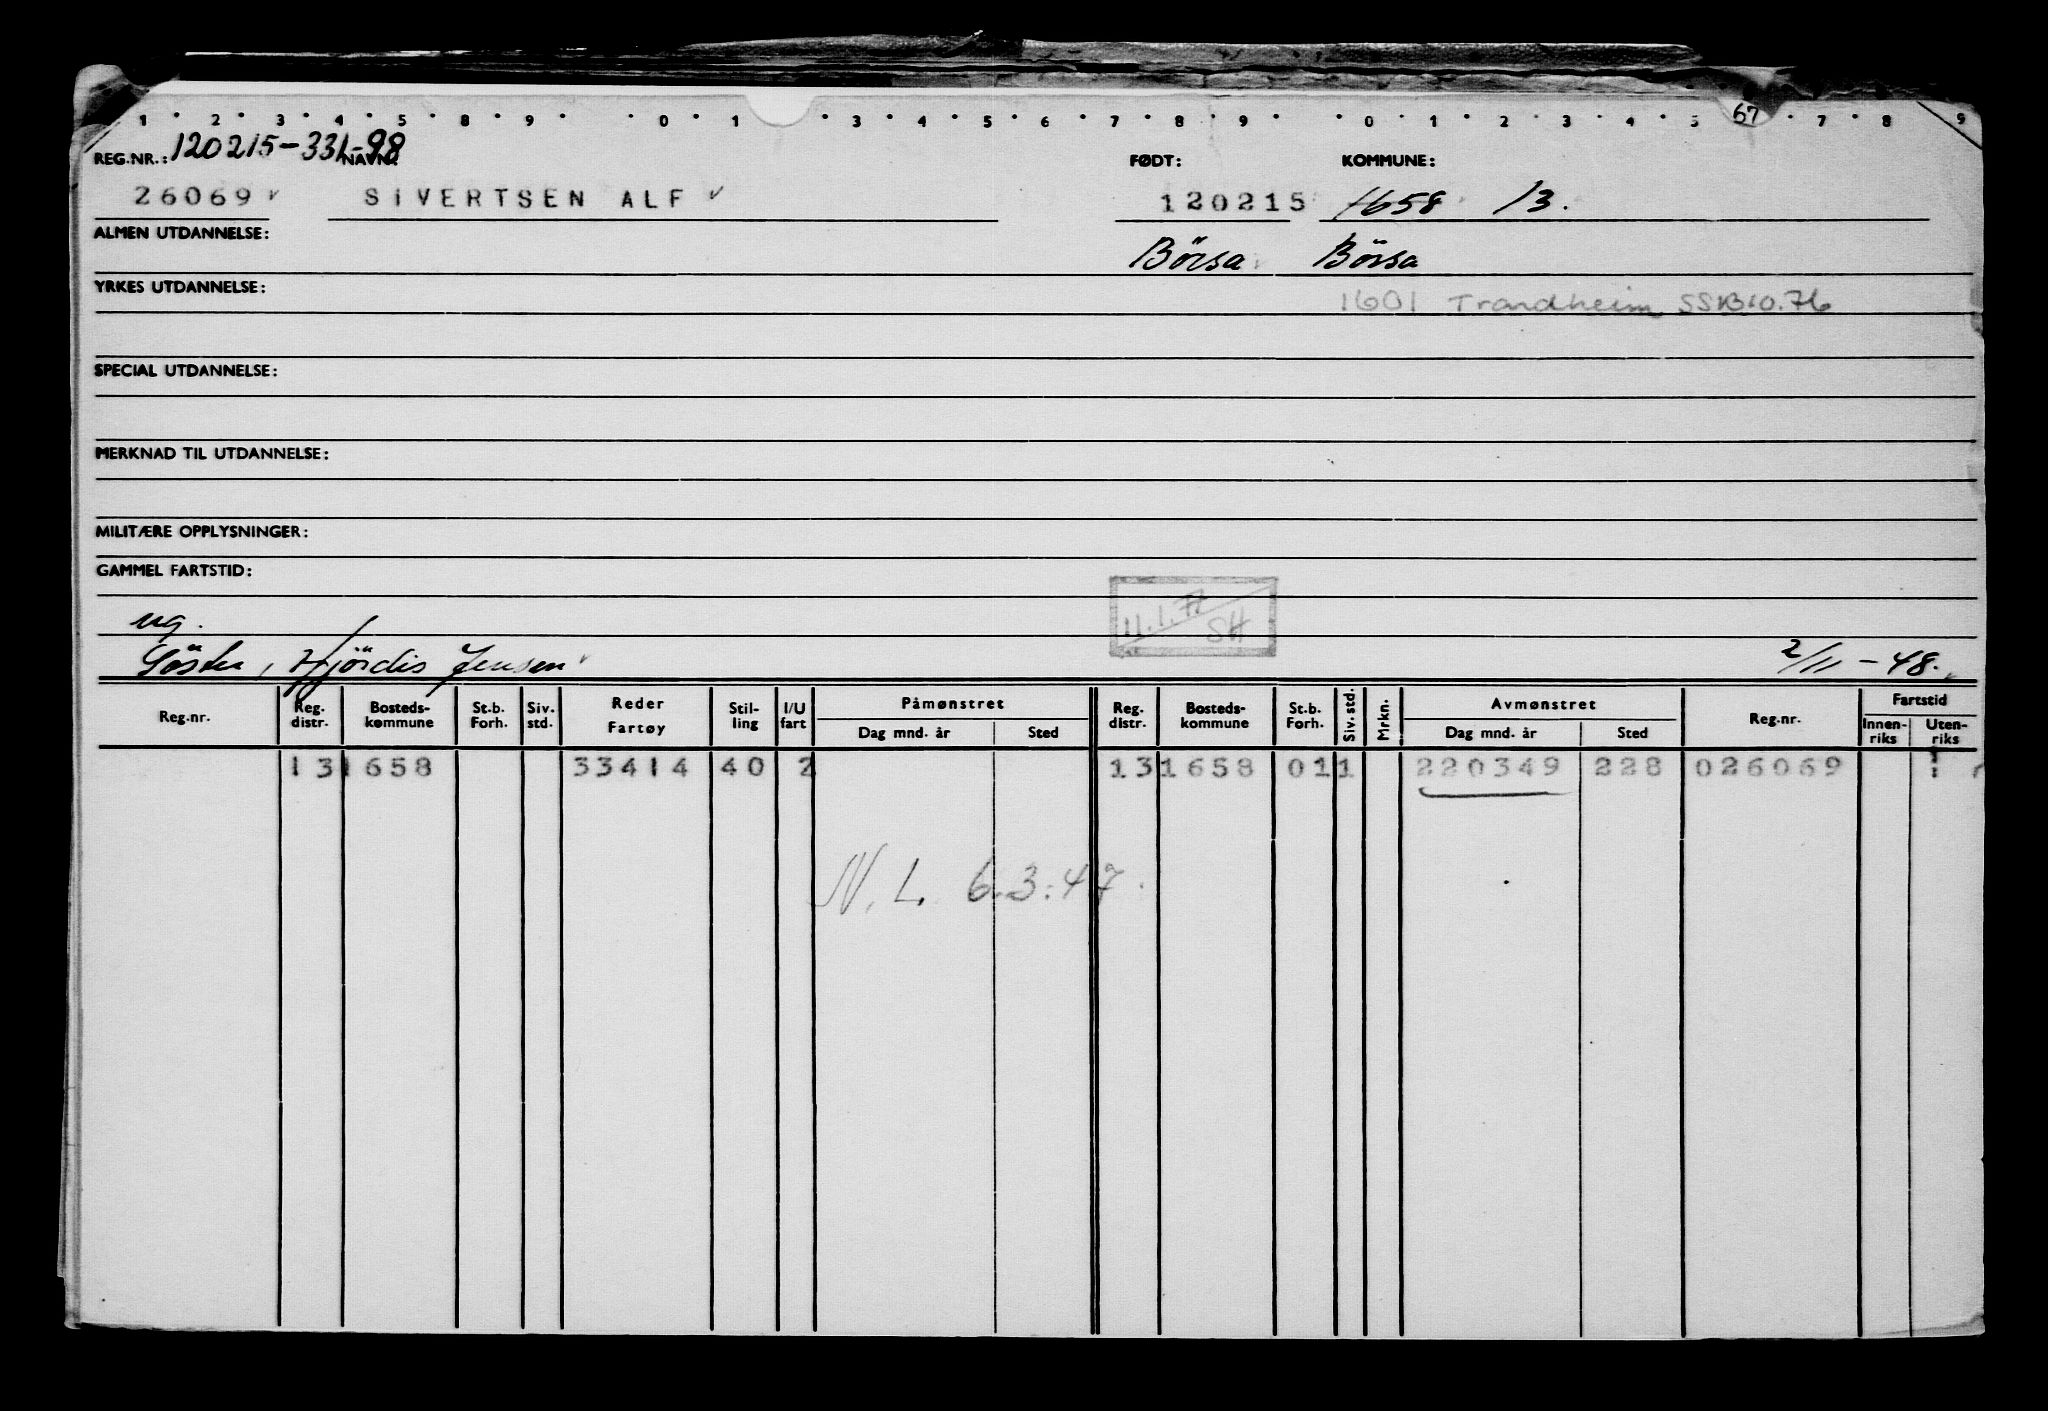 1 2 3 4 5 8 9 0 1 3 4 5 6 7 8 9 0 1 2 3 4 5 67 7 8 9
REG.NR.: 120215-331-98 NAVN: FØDT: KOMMUNE:
26069 SIVERTSEN ALF 120215 1658 13.
ALMEN UTDANNELSE: Börsa Börsa
YRKES UTDANNELSE: 1601 Trondheim SSB10.76
SPECIAL UTDANNELSE:
MERKNAD TIL UTDANNELSE:
MILITÆRE OPPLYSNINGER:
GAMMEL FARTSTID:
ug. 11.1.77 SH
Söster, Hjördis Jensen 2/11-48.
Reg.nr. Reg. distr. Bosteds-kommune St.b. Forh. Siv. std. Reder Fartøy Stil-ling I/U fart Påmønstret Dag mnd. år Sted Reg. distr. Bosteds-kommune St.b. Forh. Siv. std. Mrkn. Avmønstret Dag mnd. år Sted Reg.nr. Fartstid Innen-riks Uten-riks
13 1658 33414 40 2 13 1658 01 1 220349 228 026069
N.L. 6.3.47